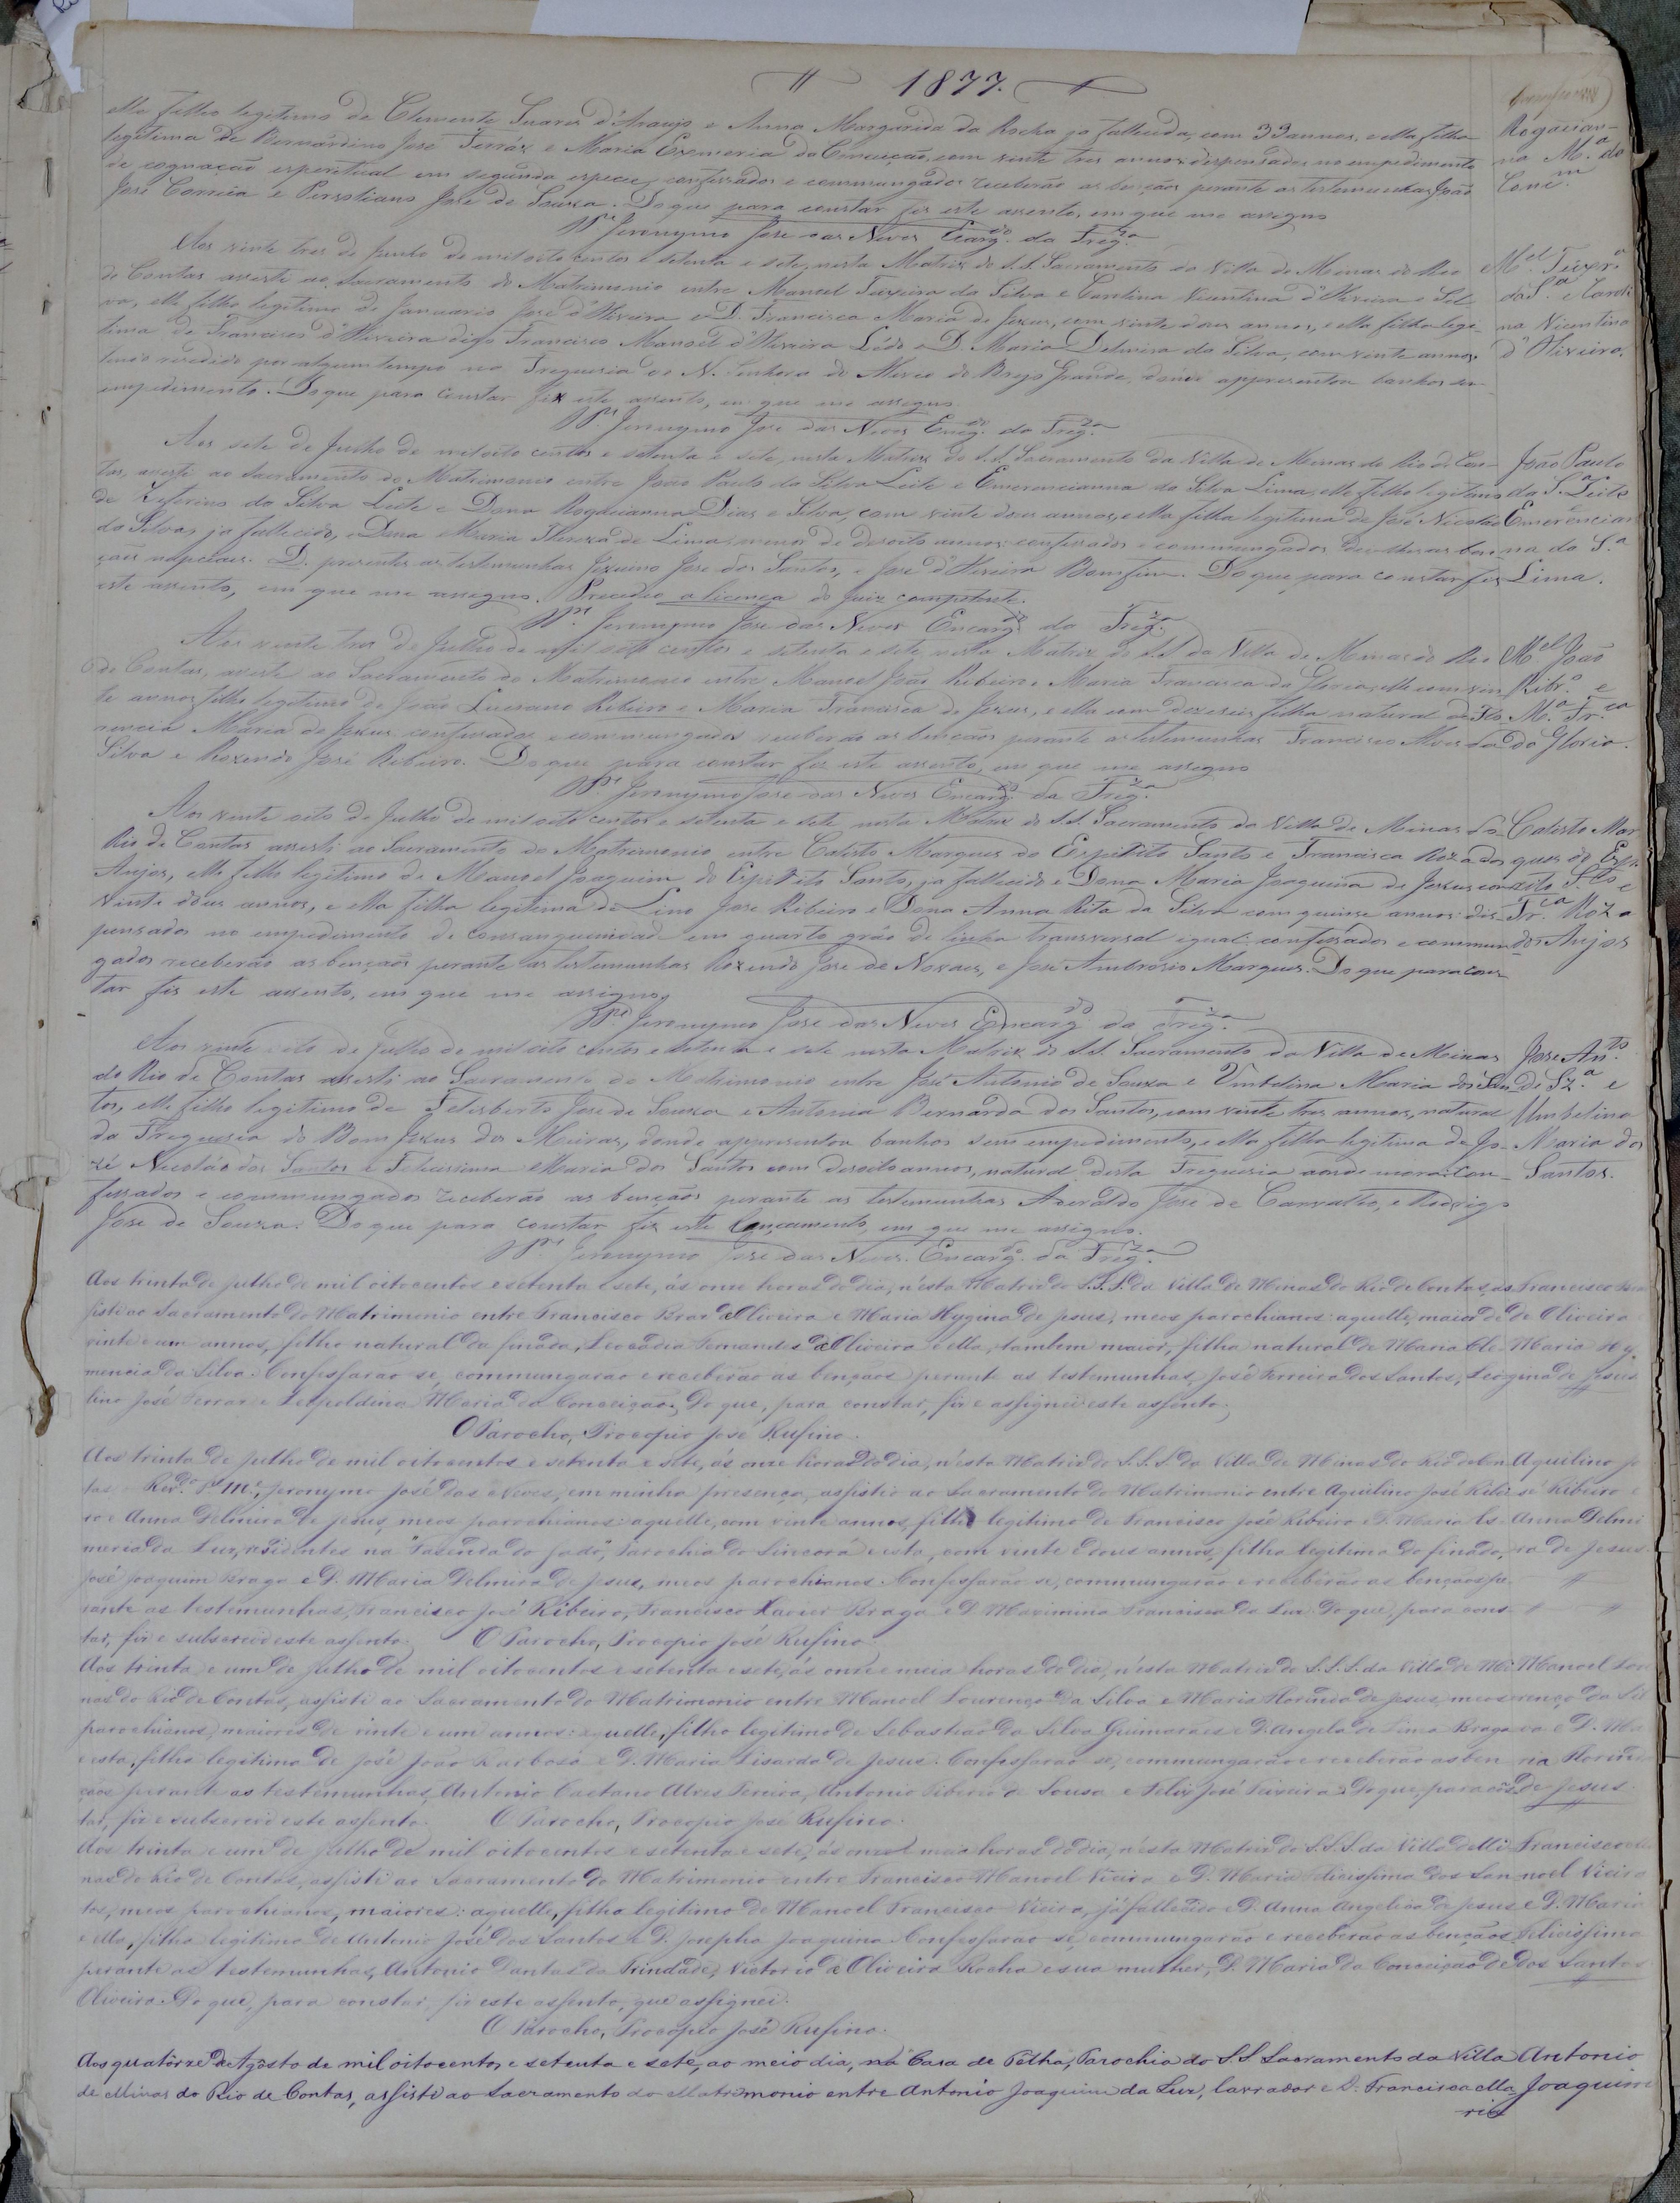 1877.
elle filho legitimo de Clemente Soares d'Araujo e Anna Margarida da Rocha ja fallecida, com 33 annos, e ella filha
legitima de Bernardino José Ferráz e Maria da Conceição, com vinte tres annos dispensados no impedimento
de cognação espiritual em segunda especie, confessados e commungados receberão as bençãos perante as testemunhas João
José Corrêia e José de Souza. Do que para constar fiz este assento, em que me assigno
Rogacian-
na M.ª da
Conc.m
P.e Jeronymo José das Neves Encarg.do da Freg.za
Aos vinte tres de Junho de mil oito centos e setenta e sete, nesta Matriz do S.S. Sacramento da Villa de Minas do Rio
de Contas assisti ao Sacramento do Matrimonio entre Manoel Teixeira da Silva e Carolina Vicentina d'Oliveira e Sil
va, elle filho legitimo de Januario José d'Oliveira e D. Francisca Maria de Jezus, com vinte dous annos, e ella filha legi-
tima de Francisco d'Oliveira digo Francisco Manoel d'Oliveira Lêdo e D. Maria Delmira da Silva, com vinte annos,
tendo residido por algum tempo na Freguesia de N. Senhora do do Brejo Grande, donde appresentou banhos sem
impedimento. Do que para constar fiz este assento, em que me assigno
M.el Teixr.ª
da S.ª e Caroli
na Vicentina
d'Oliveira.
P.e Jeronymo José das Neves Encg.do da Freg.za
Aos sete de Julho de mil oito centos e setenta e sete, nesta Matriz do S.S. Sacramento da Villa de Minas do Rio de Con-
tas, assisti ao Sacramento do Matrimonio entre João Paulo da Silva Leite e Emerencianna da Silva Lima, elle filho legitimo
de Zeferino da Silva Leite e Dona Rogacianna Dias e Silva, com vinte dous annos, e ella filha legitima de José Nicolão
da Silva, ja fallecido, e Dona Maria Thereza de Lima, menor de desoito annos: confessados e commungados dei-lhes as ben-
çãos nupciaes. D. presentes as testemunhas Jezuino José dos Santos, e José d'Oliveira Bomfim. Do que para constar fiz
este assento, em que me assigno. Precedeo a licença do Juiz competente.
João Paulo
da S.ª Leite
Emerencian
na da S.ª
Lima.
P.e Jeronymo José das Neves Encarg.do da Freg.za
Aos vinte tres de Julho de mil oito centos e setenta e sete nesta Matriz do S.S. da Villa de Minas do Rio
de Contas, assisti ao Sacramento do Matrimonio entre Manoel João Ribeiro e Maria Francisca da Gloria, elle com vin
te annos filho legitimo de João Luciano Ribeiro e Maria Francisca de Jezus, e ella com dezeseis, filha natural de Flo
rencia Maria de Jezus confessados e commungados receberão as bençãos perante as testemunhas Francisco Alves da
Silva e Rozendo José Ribeiro. Do que para constar fiz este assento, em que me assigno
M.el João
Ribr.º e
M.ª Fr.ca
da Gloria.
P.e Jeronymo José das Neves Encarg.do da Freg.za
Aos vinte oito de Julho de mil oito centos e setenta e sete nesta Matriz do S.S. Sacramento da Villa de Minas do
Rio de Contas assisti ao Sacramento do Matrimonio entre Calisto Marques do Espirito Santo e Francisca Roza dos
Anjos, elle filho legitimo de Manoel Joaquim do Espirito Santo, ja fallecido e Dona Maria Joaquina de Jezus com
vinte dous annos, e ella filha legitima de Lino José Ribeiro e Dona Anna Rita da Silva com quinse annos: dis-
pensados no impedimento de consanguinidade em quarto gráo de linha transversal igual: confessados e commun
gados receberão as bençãos perante as testemunhas Rozendo José de Novaes, e José Ambrosio Marques. Do que para cons
tar fiz este assento, em que me assigno
Calisto Mar
ques do Esp.
rito S.to e
Fr.ca Roza
dos Anjos
P.e Jeronymo José das Neves Encarg.do da Freg.za
Aos vinte oito de Julho de mil oito centos e setenta e sete nesta Matriz do S.S. Sacramento da Villa de Minas
do Rio de Contas assisti ao Sacramento do Matrimonio entre José Antonio de Souza e Umbelina Maria dos San
tos, elle filho legitimo de Felisberto José de Souza e Antonia Bernarda dos Santos, com vinte tres annos, natural
da Freguezia do Bom Jezus dos Meiras, donde appresentou banhos sem impedimento, e ella filha legitima de Jo-
zé Nicoláo dos Santos e Felicissima Maria dos Santos com desoito annos, natural desta Freguezia aonde mora: con-
fessados e commungados receberão as bençãos perante as testemunhas José de Carvalho, e Rodrigo
José de Souza. Do que para constar fiz este lançamento, em que me assigno.
José An.to
de Sz.ª e
Umbelina
Maria dos
Santos.
P.e Jeronymo José das Neves. Encarg.do da Freg.za
Aos trinta de julho de mil oitocentos e setenta e sete, ás onze horas do dia, n'esta Matriz do S.S.S. da Villa de Minas do Rio de Contas, as
sisti ao Sacramento do Matrimonio entre Francisco Braz de Oliveira e Maria Hygina de Jesus, meos parochianos: aquelle, maior de
vinte e um annos, filho natural da finada, Leocadia Fernandes de Oliveira e ella, tambem maior, filha natural de Maria Cle-
mencia da Silva. Confessarão-se, commungarão e receberão as bençãos perante as testemunhas, José Ferreira dos Santos,
lino José Ferraz e Leopoldina Maria da Conceição. Do que, para constar, fiz e assignei este assento.
Francisco
de Oliveira
Maria Hy
gina de Jesus
O Parocho, Procopio José Rufino.
Aos trinta de Julho de mil oitocentos e setenta e sete, ás onze horas do dia, n'esta Matriz do S.S.S. da Villa de Minas do Rio de Con
tas o Rev.do P.e M.e Jeronymo José das Neves, em minha presença, assistio ao Sacramento do Matrimonio entre Aquilino José Ribei
ro e Anna Delmira de Jesus, meos parochianos: aquelle, com vinte annos, filho legitimo de Francisco José Ribeiro e D. Maria Es-
meria da Luz, residentes na Fasenda do, Parochia do Sincorá e esta, com vinte e dous annos, filha legitima do finado,
José Joaquim Braga e D. Maria Delmira de Jesus, meos parochianos. Confessarão-se, commungarão e receberão as bençãos pe-
rante as testemunhas, Francisco José Ribeiro, Francisco Xavier Braga e D. Maximina Francisca da Luz. Do que, para cons
tar, fiz e subscrevi este assento. O Parocho, Procopio José Rufino.
Aquilino Jo
sé Ribeiro e
Anna Delmi
ra de Jesus.
Aos trinta e um de julho de mil oitocentos e setenta e sete, ás onze e meia horas do dia, n'esta Matriz do S.S.S. da Villa de Mi
nas do Rio de Contas, assisti ao Sacramento do Matrimonio entre Manoel Lourenço da Silva e Maria Florinda de Jesus, meos
parochianos, maiores de vinte e um annos: aquelle, filho legitimo de Sebastião da Silva Guimarães e D. Angela de Lima Braga
e esta, filha legitima de José João Barbosa e D. Maria Lisarda de Jesus. Confessarão-se, commungarão e receberão as ben
çãos perante as testemunhas, Antonio Caetano Alves Pereira, Antonio Tiberio de Sousa e Felix José Teixeira. Do que, para cons
tar, fiz e subscrevi este assento. O Parocho, Procopio José Rufino.
Manoel Lou
renço da Sil
va e D. Ma
ria Florin
de Jesus
Aos trinta e um de julho de mil oitocentos e setenta e sete, ás onze e meia horas do dia, n'esta Matriz do S.S.S. da Villa de Mi
nas do Rio de Contas, assisti ao Sacramento do Matrimonio entre Francisco Manoel Vieira e D. Maria Felicissima dos San
tos, meos parochianos, maiores: aquelle, filho legitimo de Manoel Francisco Vieira, já fallecido e D. Anna Angelica de Jesus
e ella, filha legitima de Antonio José dos Santos e D. Josepha Joaquina. Confessarão-se, commungarão e receberão as bençãos
perante as testemunhas, Antonio Dantas da Trindade, Victorio de Oliveira Rocha e sua mulher, D. Maria da Conceição de
Oliveira. Do que, para constar, fiz este assento, que assignei.
Francisco Ma
noel Vieira
e D. Maria
Felicissima
dos Santos
O Parocho, Procopio José Rufino.
Aos quatorze de Agôsto de mil oitocentos e setenta e sete, ao meio dia, na Casa de Têlha, Parochia do S.S. Sacramento da Villa
de Minas do Rio de Contas, assisti ao Sacramento do Matrimonio entre Antonio Joaquim da Luz, lavrador e D. Francisca Ma-
ria
Antonio
Joaquim